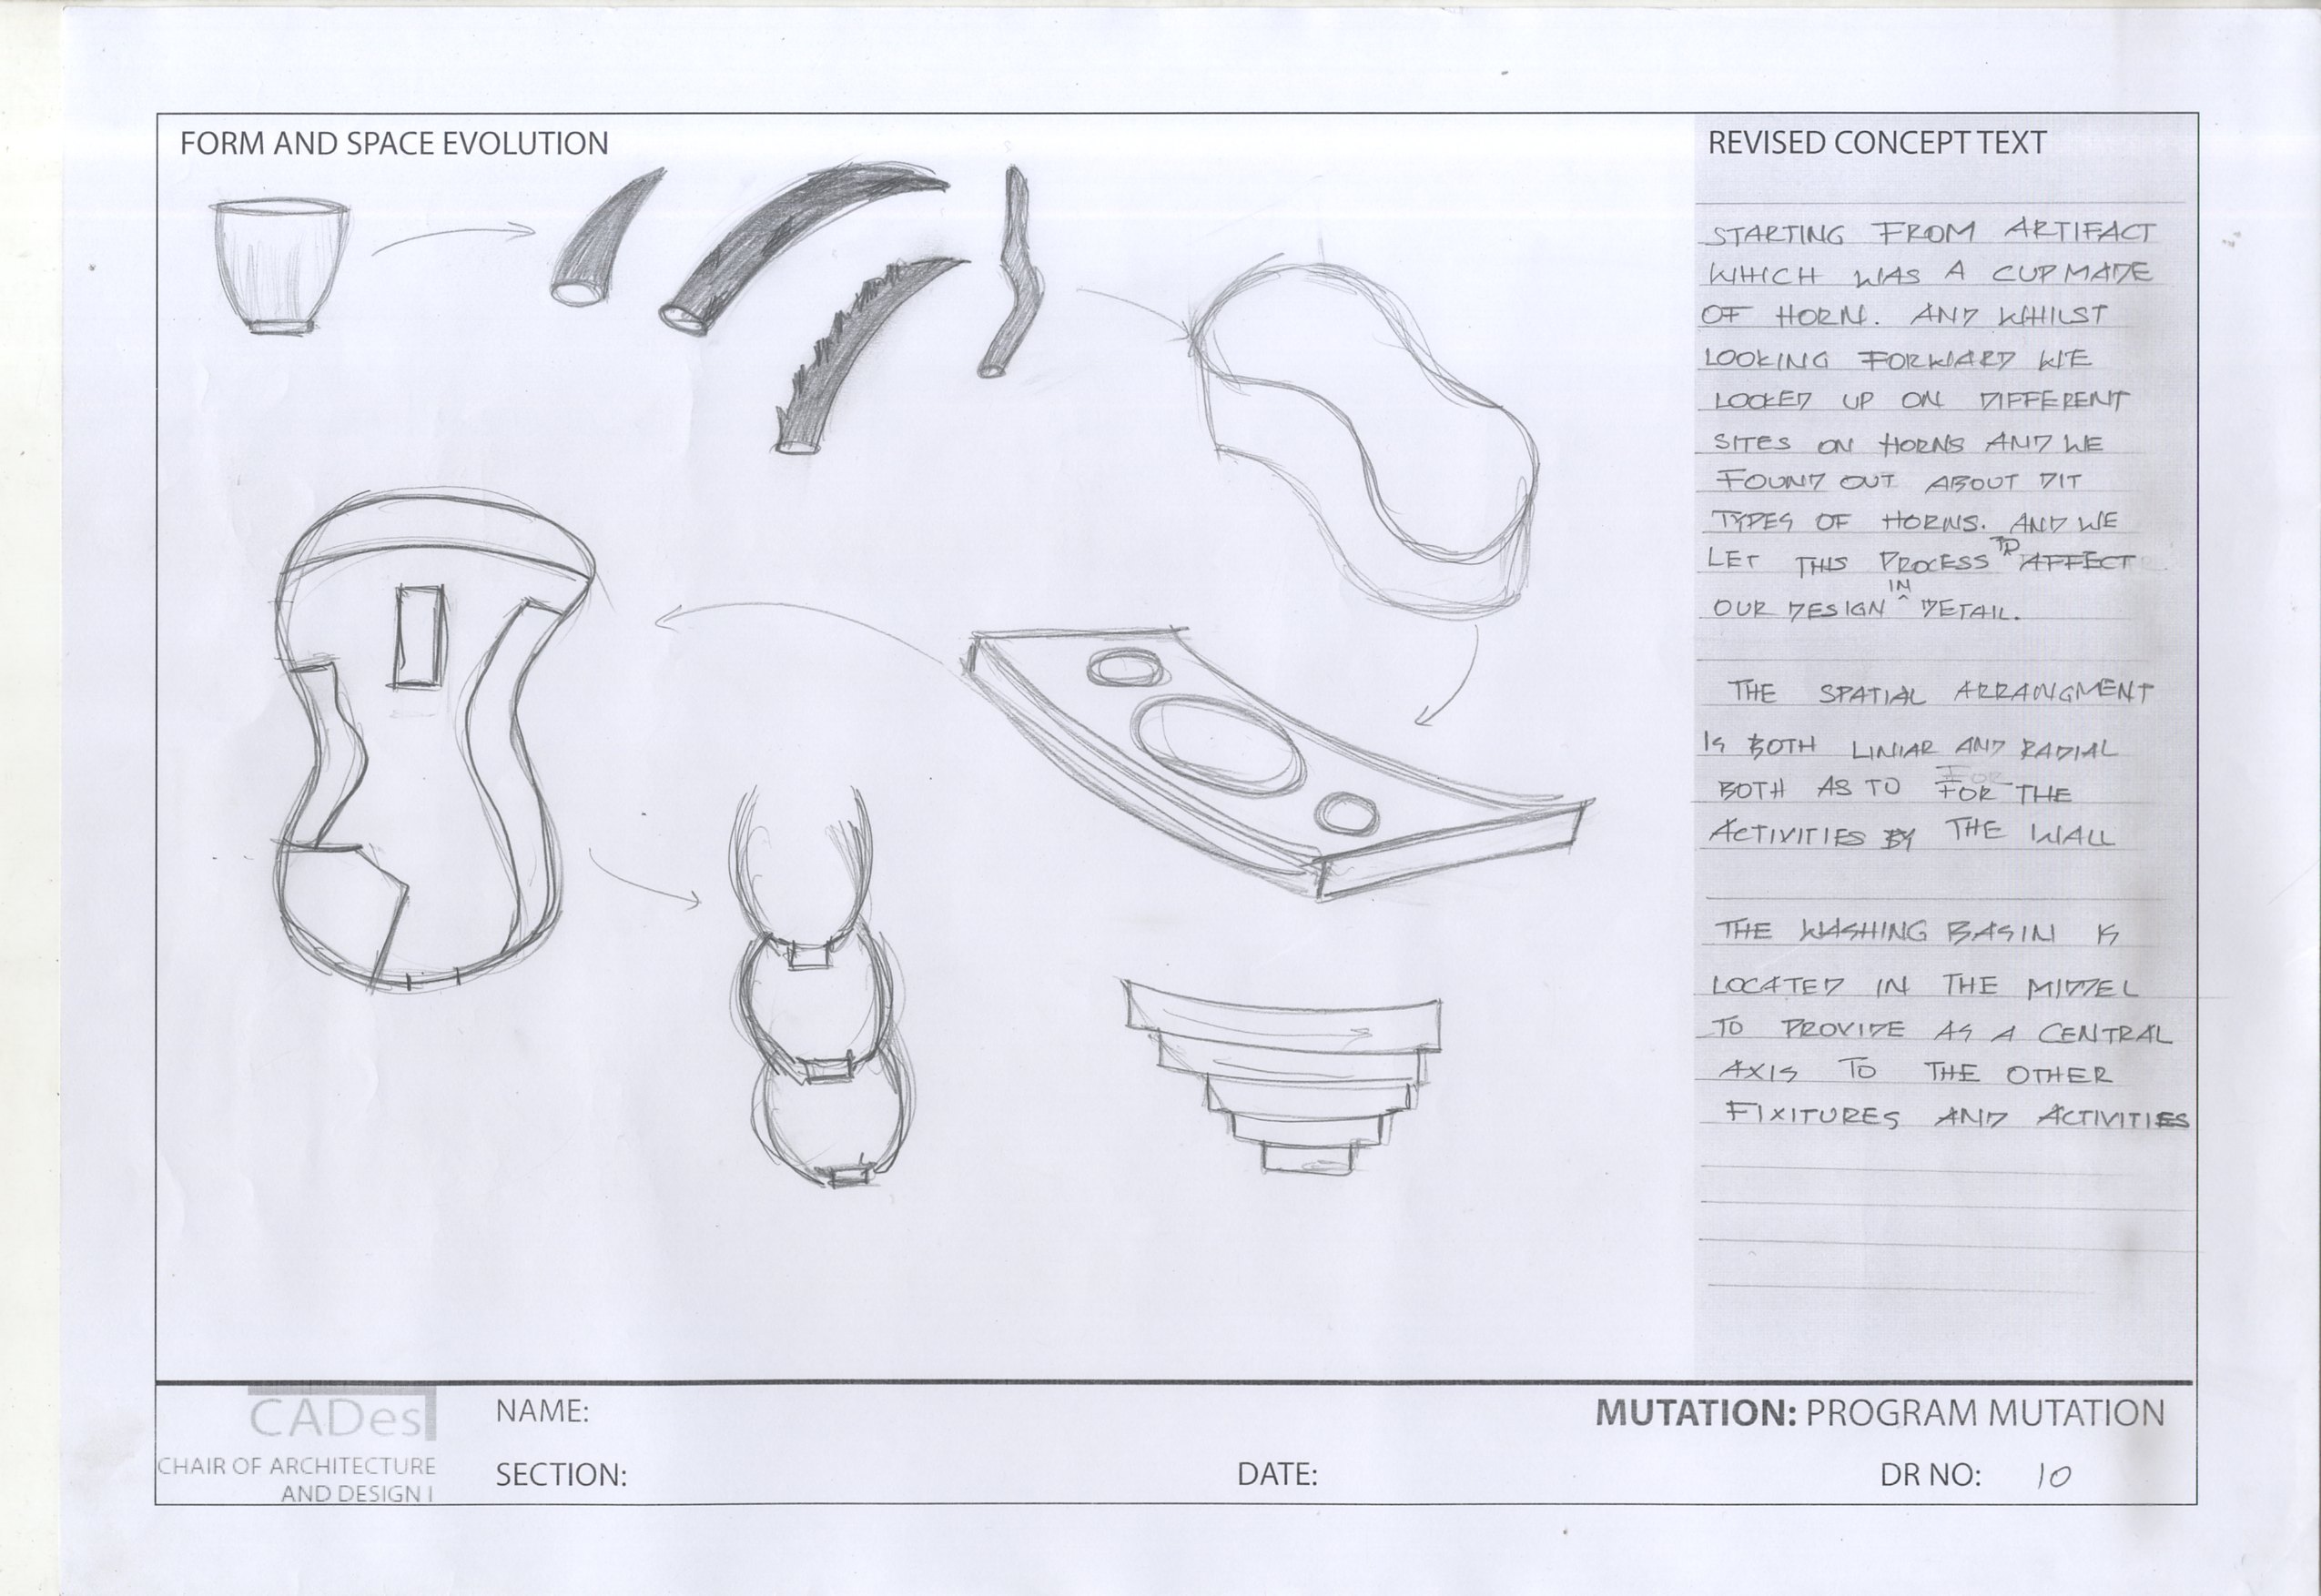 FORM AND SPACE EVOLUTION
REVISED CONCEPT TEXT
STARTING FROM ARTIFACT
WHICH WAS A CUP MADE
OF HORN. AND WHILST
LOOKING FORWARD WE
LOOKED UP ON DIFFERENT
SITES ON HORNS AND WE
FOUND OUT ABOUT DIT
TYPES OF HORNS. AND WE
LET THIS PROCESS TO AFFECT
OUR DESIGN IN DETAIL.
THE SPATIAL ARRANGMENT
IS BOTH LINIAR AND RADIAL
BOTH AS TO FOR THE
ACTIVITIES BY THE WALL
THE WASHING BASIN IS
LOCATED IN THE MIDDEL
TO PROVIDE AS A CENTRAL
AXIS TO THE OTHER
FIXITURES AND ACTIVITIES
CADes
CHAIR OF ARCHITECTURE
AND DESIGN I
NAME:
SECTION:
DATE:
MUTATION: PROGRAM MUTATION
DR NO: 10